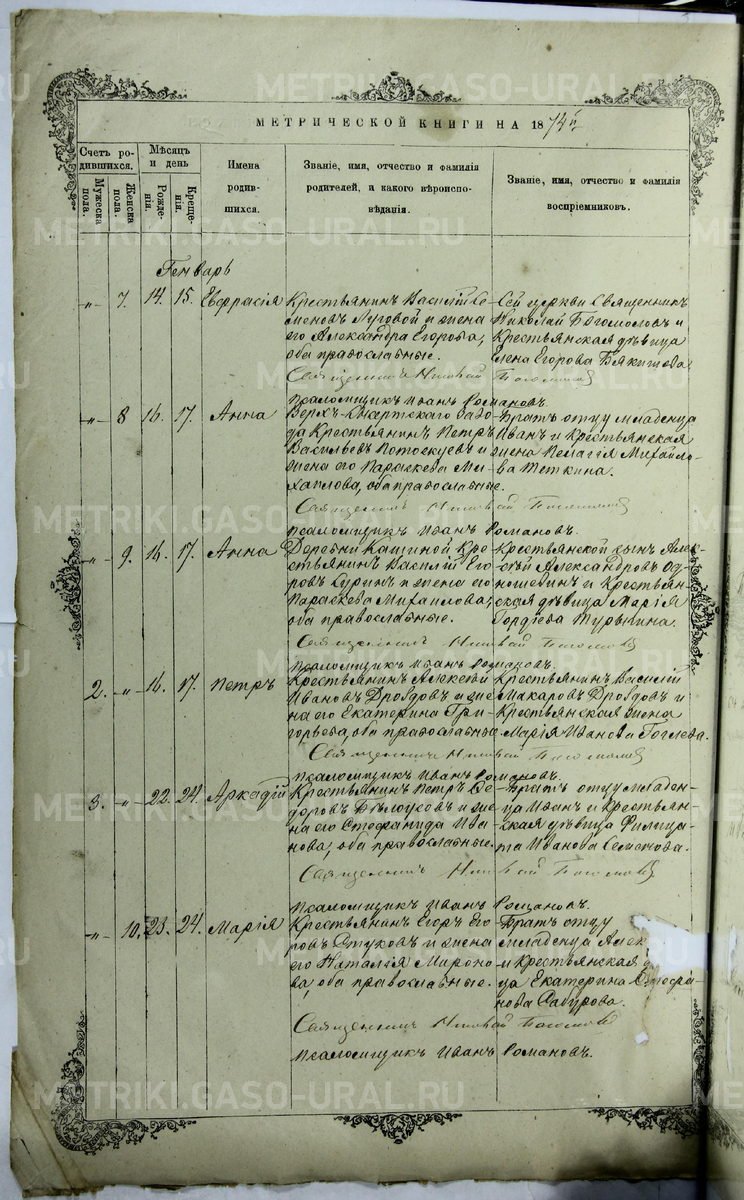 МЕТРИЧЕСКОЙ КНИГИ НА 1874й
Счетъ родившихся.
Мужеска пола.
Женска пола.
Мѣсяцъ и день
Рожденія.
Крещенія.
Имена
родив-
шихся.
Званіе, имя, отчество и фамилія
родителей, и какого вѣроиспо-
вѣданія.
Званіе, имя, отчество и фамилія
воспріемниковъ.
Генварь
-„- 7. 14. 15. Евфрасія
Крестьянинъ Василій Се-
меновъ Луговой и жена
его Александра Егорова,
оба православные.
Сей церкви Священникъ
Николай Богомоловъ и
Крестьянская дѣвица
Елена Егорова
Священникъ Николай Богомоловъ
Псаломщикъ Иванъ Романовъ.
-„- 8 16. 17. Анна
Верхъ-Сысертскаго заво-
да Крестьянинъ Петръ
Васильевъ Потоскуевъ и
жена его Параскева Ми-
хаилова, оба православные.
Братъ отцу младенца
Иванъ и Крестьянская
жена Пелагія Михайло-
ва Теткина.
Священникъ Николай Богомоловъ
Псаломщикъ Иванъ Романовъ.
-„- 9. 16. 17. Анна
Деревни Кашиной Кре-
стьянинъ Василій Его-
ровъ Суринъ и жена его
Параскева Михаилова,
оба православные.
Крестьянской сынъ Алек-
сѣй Александровъ Од-
ношевинъ и Крестьян-
ская дѣвица Марія
Гордѣева Турыгина.
Священникъ Николай Богомоловъ
Псаломщикъ Иванъ Романовъ.
2. -„- 16. 17. Петръ
Крестьянинъ Алексѣй
Ивановъ Дроздовъ и же-
на его Екатерина Гри-
горьева, оба православные
Крестьянинъ Василій
Макаровъ Дроздовъ и
Крестьянская жена
Марія Иванова Гоглева.
Священникъ Николай Богомоловъ
Псаломщикъ Иванъ Романовъ.
3. -„- 22. 24. Аркадій
Крестьянинъ Петръ Ѳе-
доровъ Бѣлоусовъ и же-
на его Стефанида Ива-
нова, оба православные.
Братъ отцу младен-
ца Иванъ и Крестьян-
ская дѣвица Филица-
та Иванова Семенова.
Священникъ Николай Богомоловъ
Псаломщикъ Иванъ Романовъ.
-„- 10. 23. 24. Марія
Крестьянинъ Егоръ Его-
ровъ Стуковъ и жена
его Наталія Мироно-
ва, оба православные.
Братъ отцу
младенца Алек
и Крестьянская
ца Екатерина Стефа-
нова Сабурова.
Священникъ Николай Богомоловъ
Псаломщикъ Иванъ Романовъ.
METRIKI.GASO-URAL.RU